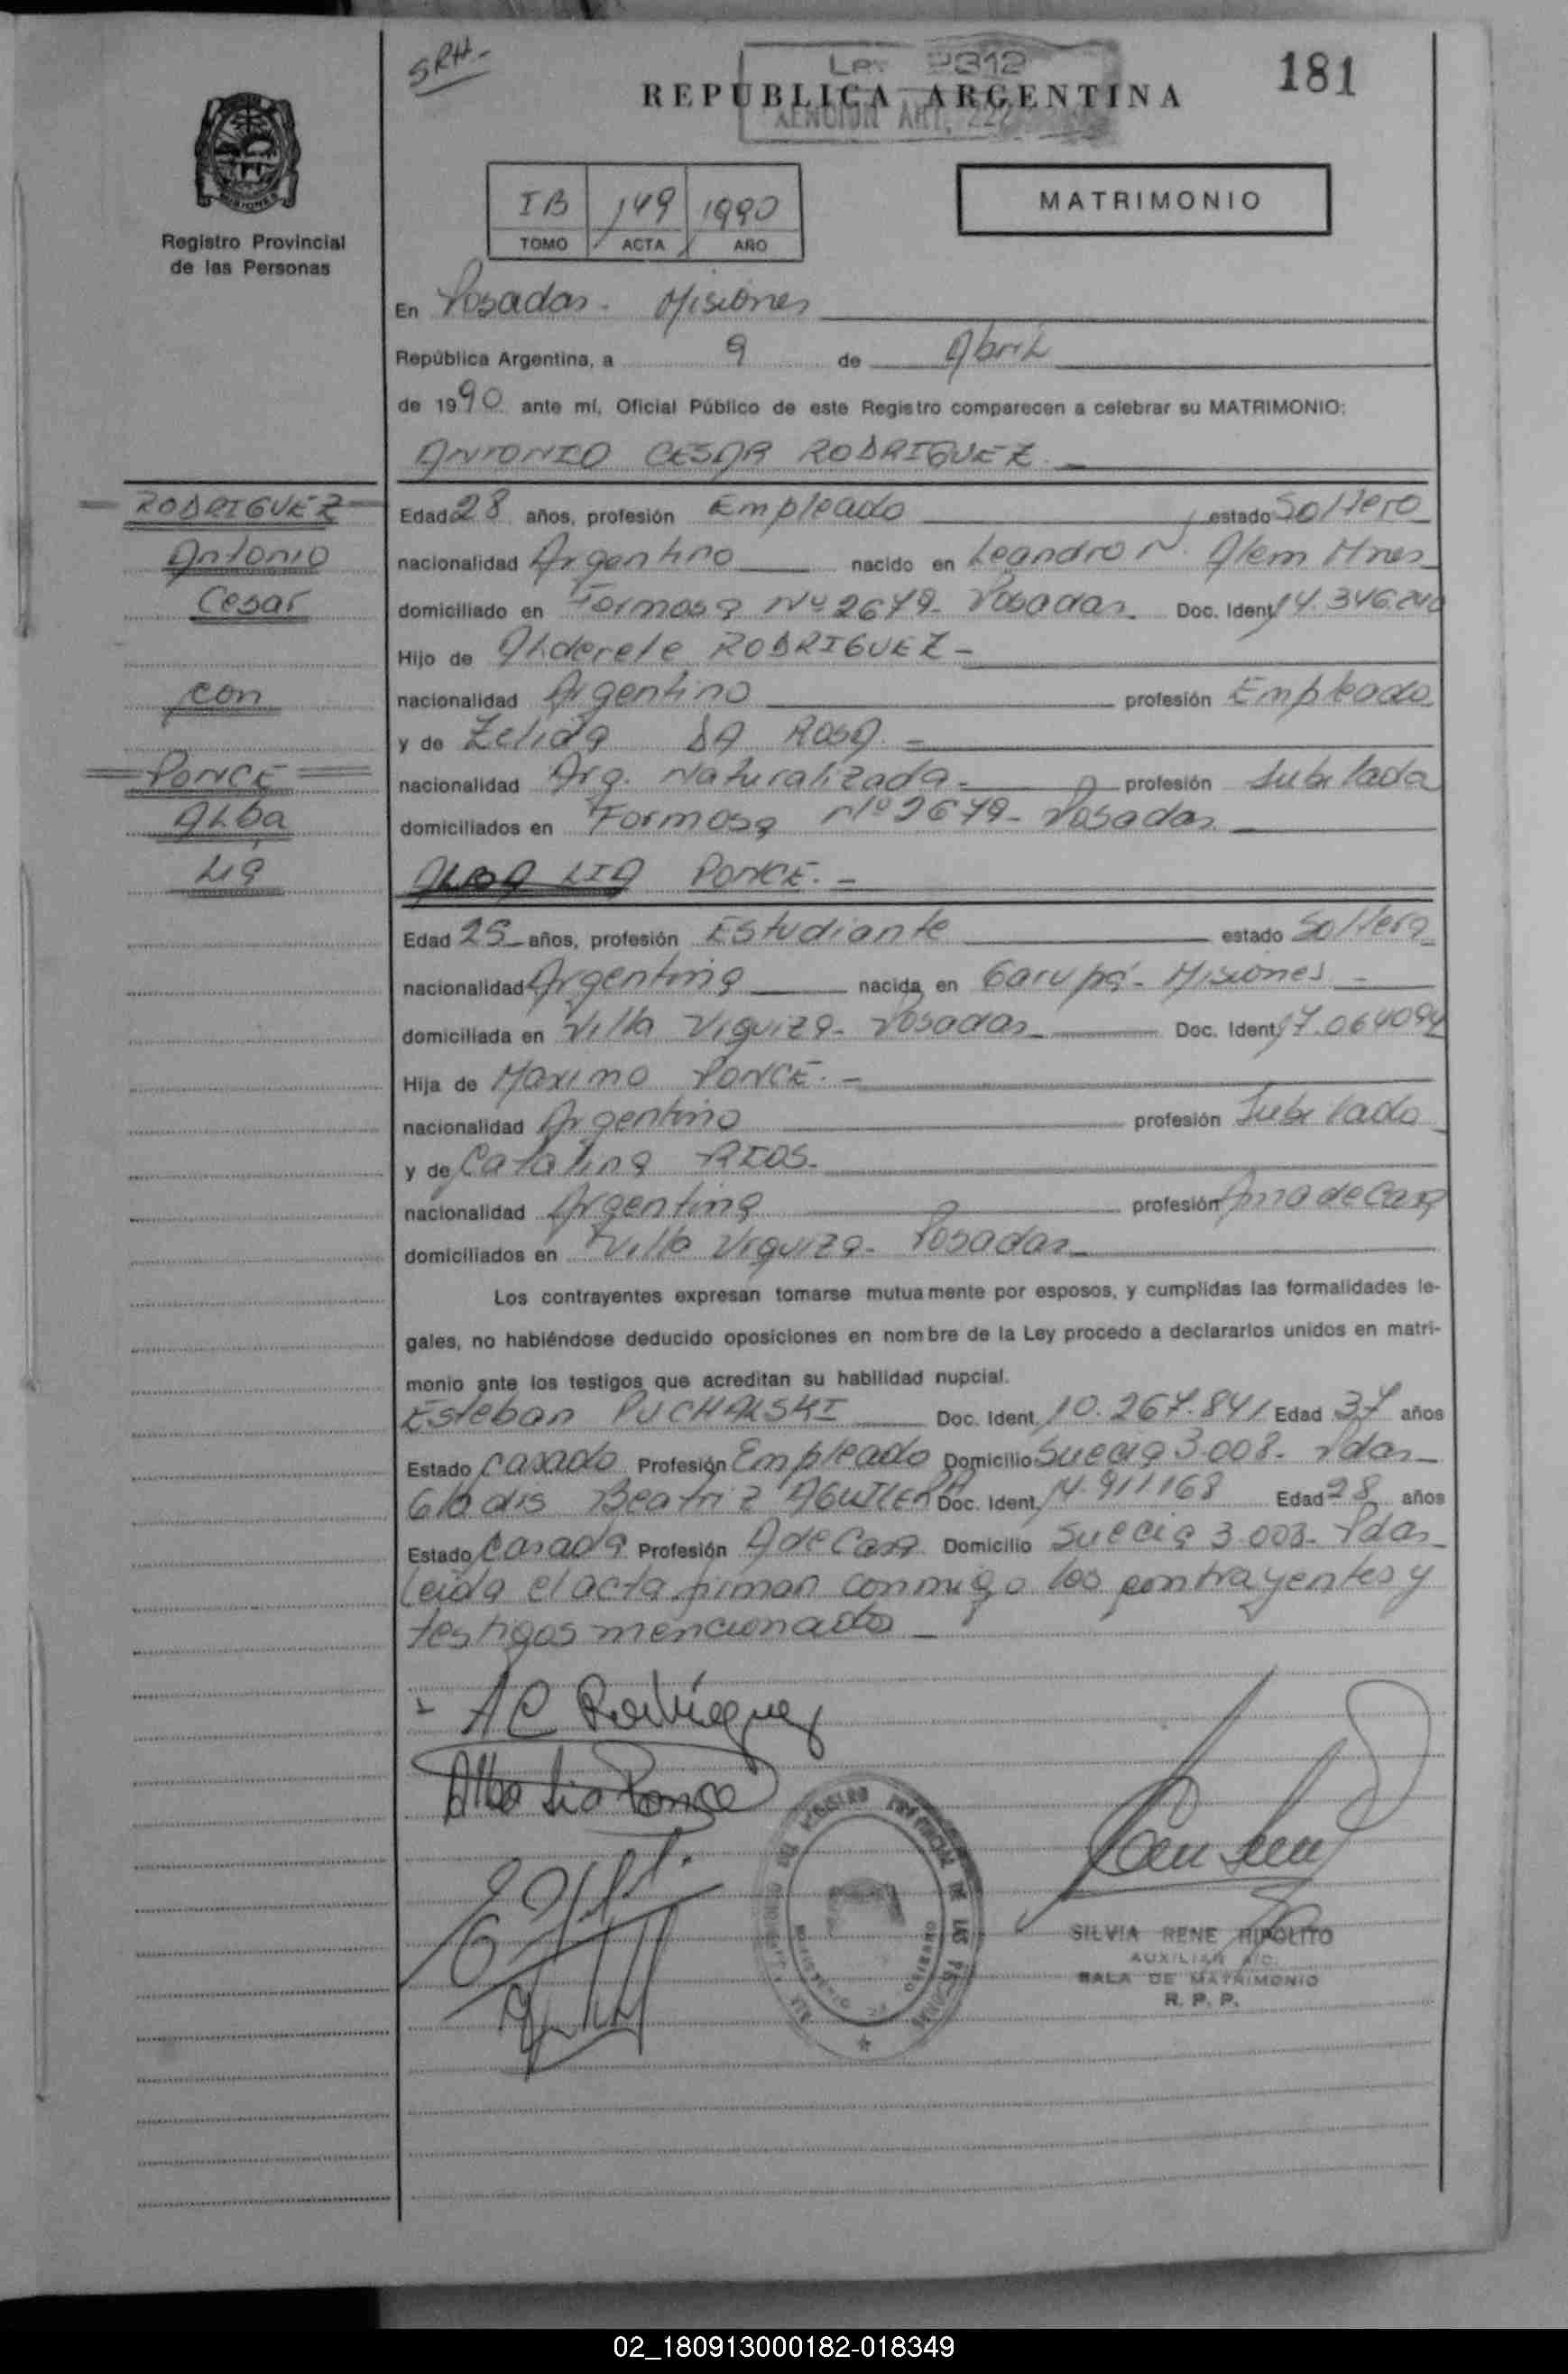 SRH-
Ley 2312
181
REPUBLICA ARGENTINA
ART. 222
MISIONES
Registro Provincial
de las Personas
IB 149 1990
TOMO ACTA AÑO
MATRIMONIO
En Posadas - Misiones
República Argentina, a 9 de Abril
de 1990 ante mí, Oficial Público de este Registro comparecen a celebrar su MATRIMONIO:
ANTONIO CESAR RODRIGUEZ.
RODRIGUEZ
Antonio
Cesar
con
PONCE
Alba
Lia
Edad 28 años, profesión Empleado estado Soltero
nacionalidad Argentino nacido en Leandro N. Alem Mnes
domiciliado en Formosa Nº 2679- Posadas Doc. Ident. 14.346.240
Hijo de Alderete RODRIGUEZ -
nacionalidad Argentino profesión Empleado
y de Zelida DA ROSA. -
nacionalidad Arg. Naturalizada- profesión Jubilada
domiciliados en Formosa Nº 2679- Posadas
ALBA LIA PONCE. -
Edad 25 años, profesión Estudiante estado Soltera
nacionalidad Argentina nacida en Garupá - Misiones -
domiciliada en Villa Urquiza- Posadas Doc. Ident. 17.064094
Hija de Maximo PONCE. -
nacionalidad Argentino profesión Jubilado
y de Catalina RIOS.
nacionalidad Argentina profesión Ama de Casa
domiciliados en Villa Urquiza- Posadas
Los contrayentes expresan tomarse mutuamente por esposos, y cumplidas las formalidades le-
gales, no habiéndose deducido oposiciones en nombre de la Ley procedo a declararlos unidos en matri-
monio ante los testigos que acreditan su habilidad nupcial.
Esteban PUCHALSKI Doc. Ident. 10.267.841 Edad 37 años
Estado Casado Profesión Empleado Domicilio Suecia 3.008- Pdas
Gladis Beatriz AGUILERA Doc. Ident. 14.911.168 Edad 28 años
Estado Casada Profesión A de Casa Domicilio Suecia 3.008- Pdas
Leida el acta firman conmigo los contrayentes y
testigos mencionados
AC Rodriguez
Alba Lia Ponce
REGISTRO PROVINCIAL DE LAS PERSONAS
SILVIA RENE RIPOLITO
AUXILIAR
SALA DE MATRIMONIO
R. P. P.
02_180913000182-018349